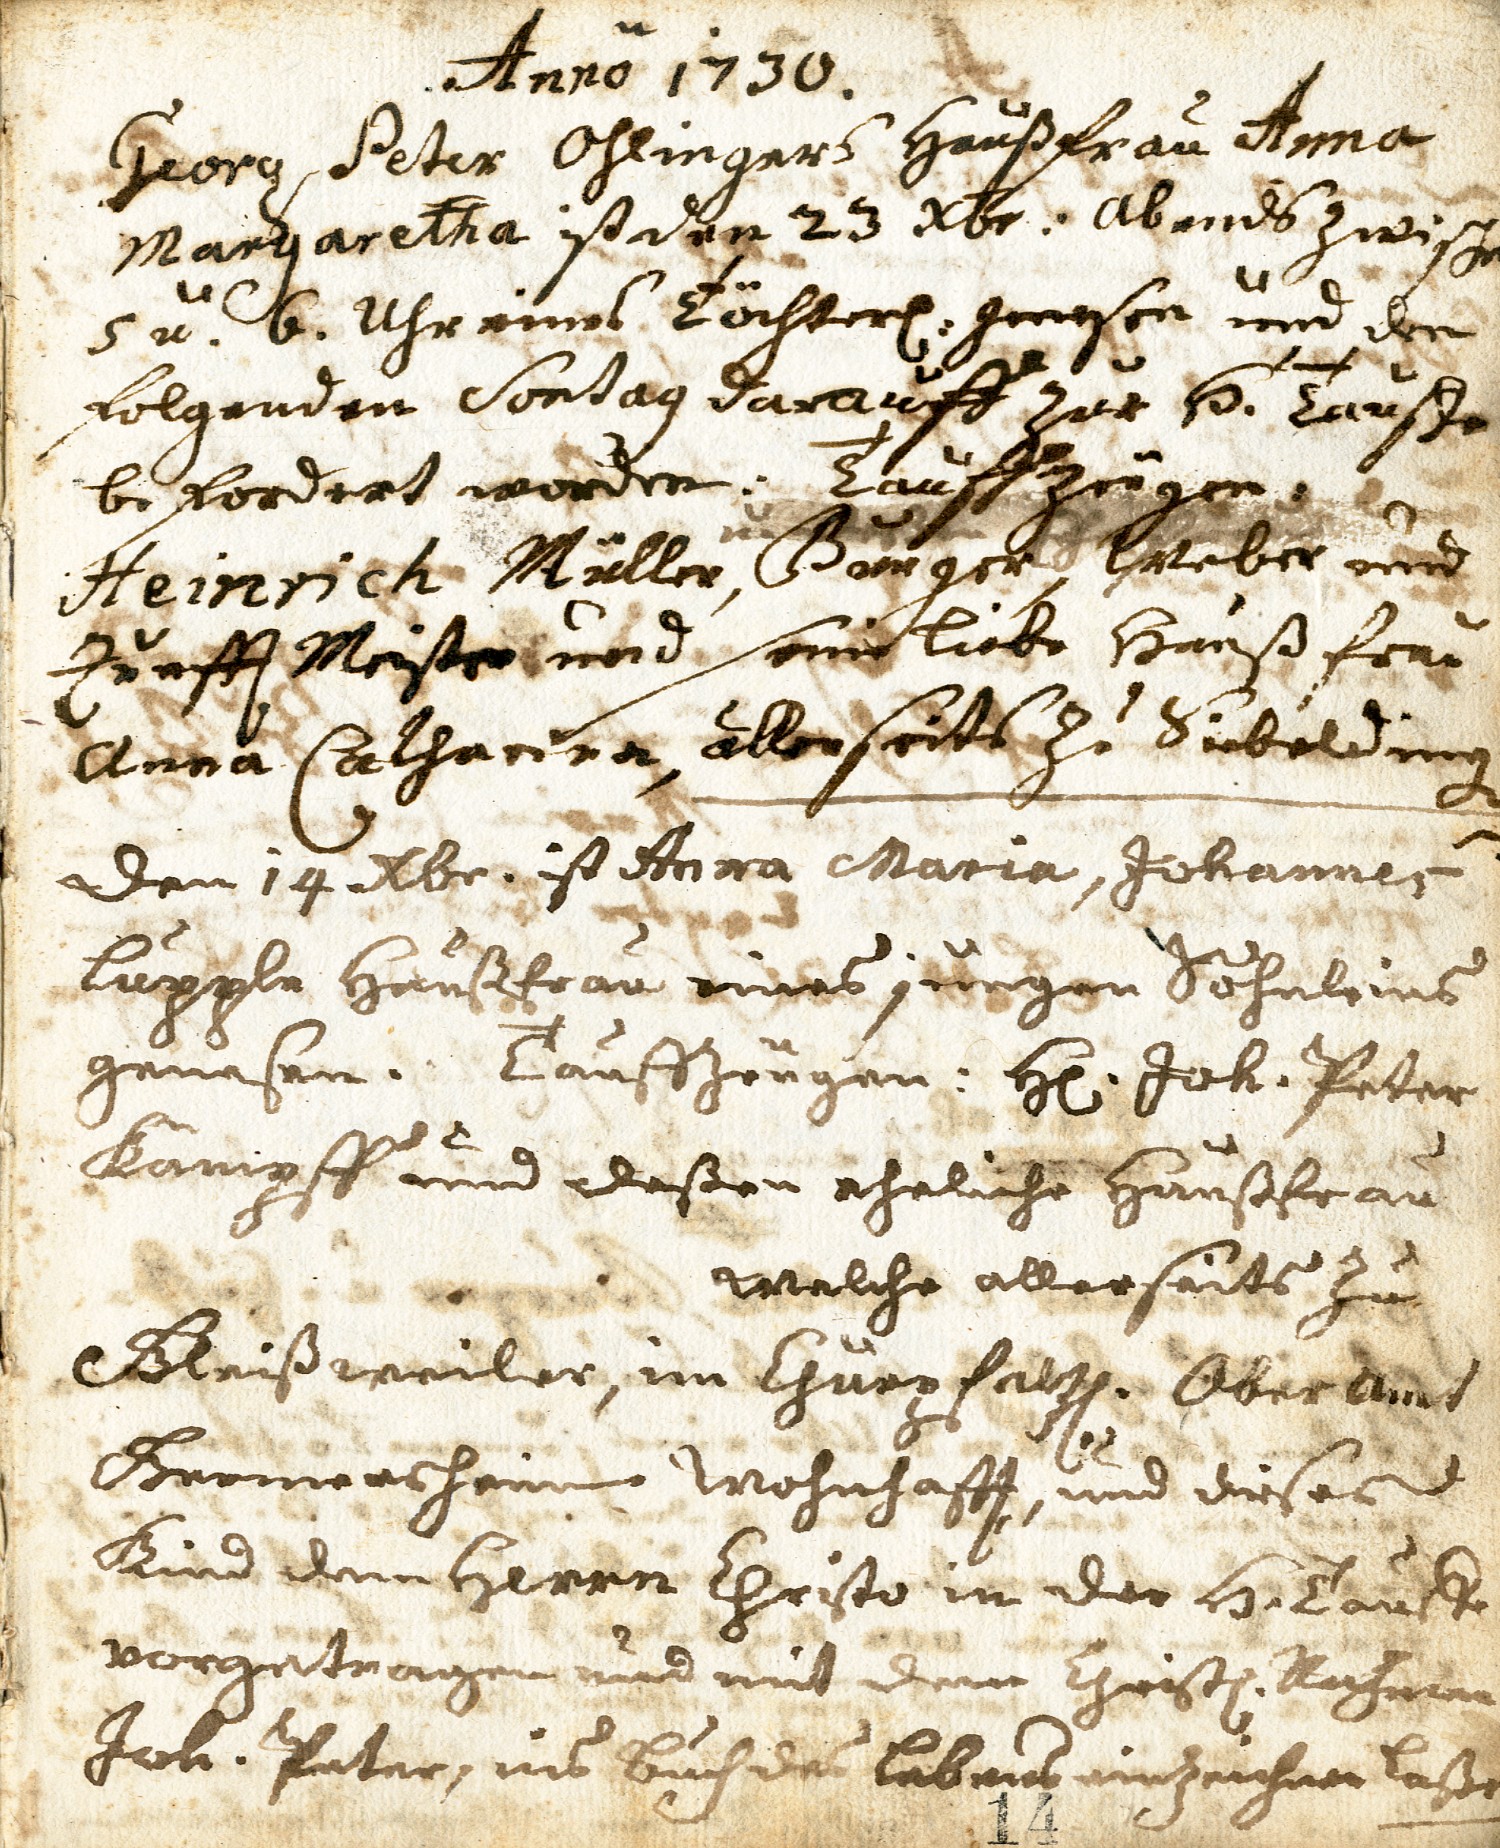 Anno 1730.
Georg Peter Ohlingers Haußfrau Anna
Margaretha ist den 23 Xbr: Abends zwischen
5 u. 6. Uhr eines Töchterl: genesen und den
folgenden Sontag darauff zur H. Tauffe
befordert worden: Tauffzeugen:
Heinrich Müller, Burger, Weber und
Zunfft Meister und seine liebe Hauß frau
Anna Catharina, allerseits zu Siebelding
Den 14 Xbr. ist Anna Maria, Johannes
Lupple Haußfrau eines jungen Söhnleins
genesen. Tauffzeugen: H. Joh. Peter
Kämpff und deßen eheliche Haußfrau
welche allerseits zu
Gleißweiler, im Churpfaltz. Ober Amt
Germersheim wohnhafft, und dieses
Kind dem Herrn Christo in der H. Tauffe
vorgetragen und mit dem Christl. Nahmen
Joh. Peter, ins Buch des Lebens einzeichnen laßen
14